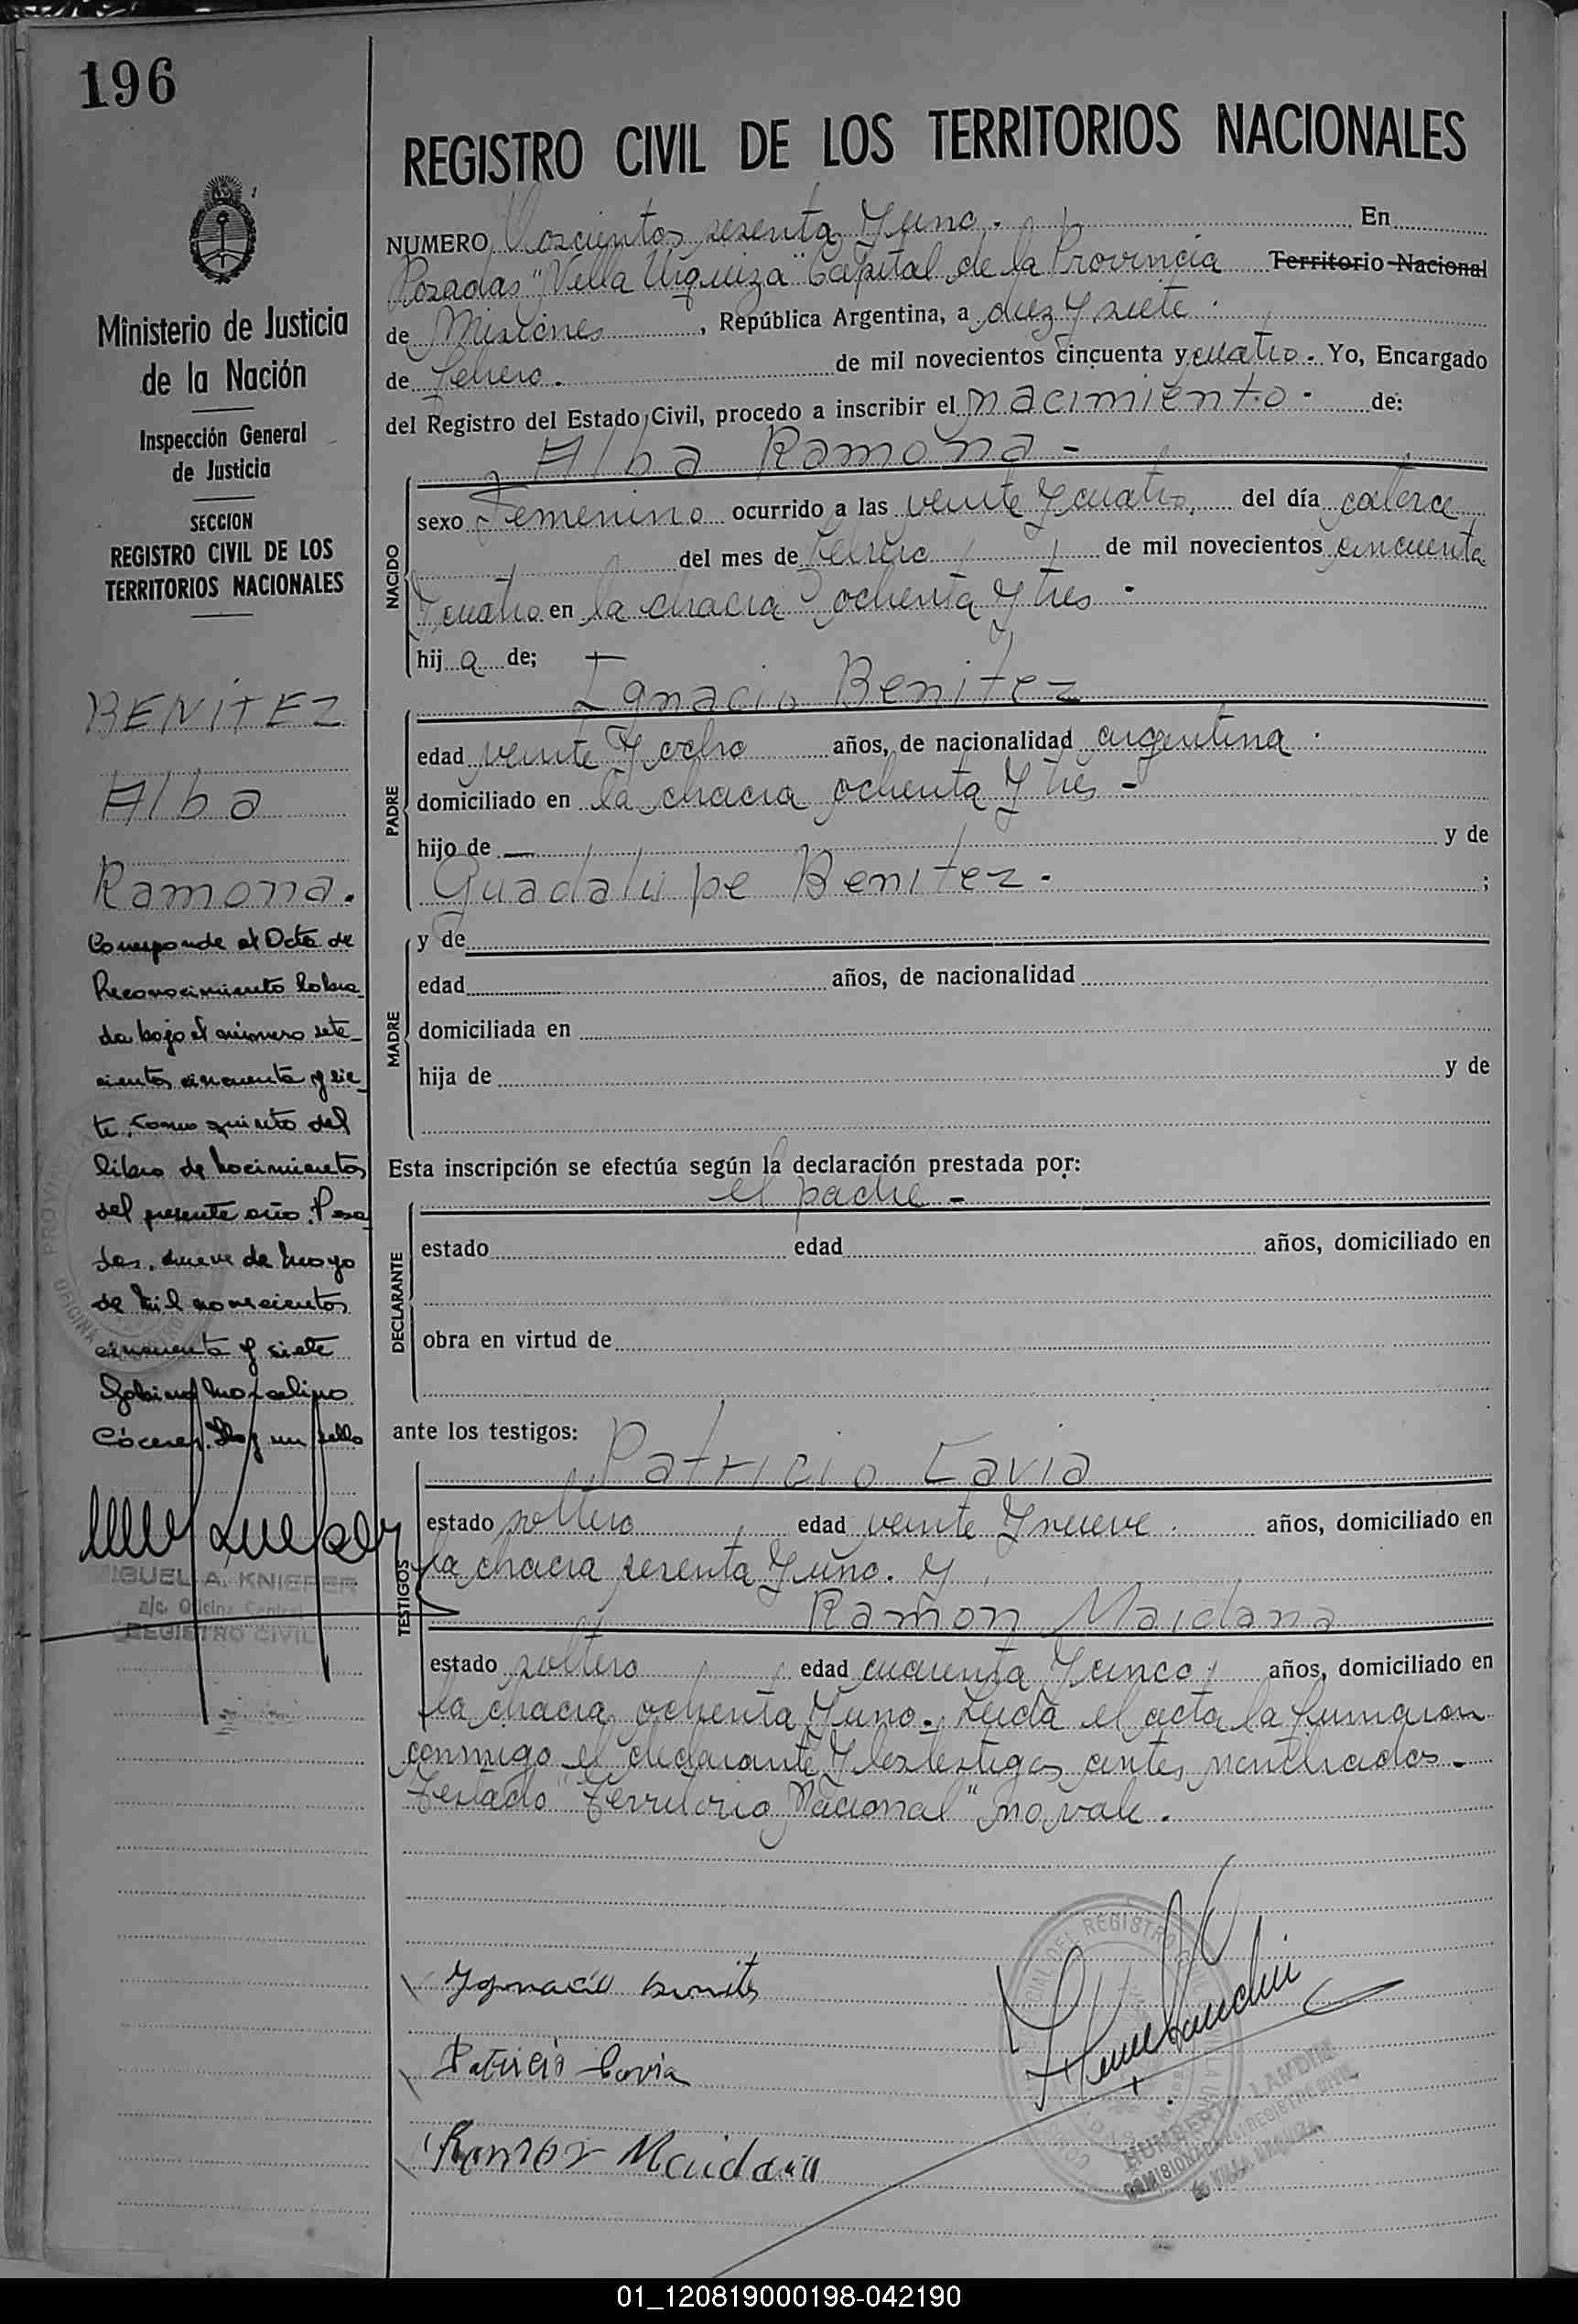 196
REGISTRO CIVIL DE LOS TERRITORIOS NACIONALES
Ministerio de Justicia
de la Nación
Inspección General
de Justicia
SECCION
REGISTRO CIVIL DE LOS
TERRITORIOS NACIONALES
BENITEZ
Alba
Ramona.
Corresponde al Acta de
Reconocimiento labra-
da bajo el número sete-
cientos cincuenta y sie-
te, tomo quinto del
libro de Nacimientos
del presente año. Posa-
das, nueve de Mayo
de mil novecientos
cincuenta y siete
Marcelino
un sello
MIGUEL A. KNIEPER
a/c. Oficina Central
REGISTRO CIVIL
NUMERO Doscientos sesenta y uno. En
Posadas "Villa Urquiza" Capital de la Provincia Territorio Nacional
de Misiones, República Argentina, a diez y siete
de febrero. de mil novecientos cincuenta y cuatro. Yo, Encargado
del Registro del Estado Civil, procedo a inscribir el nacimiento. de:
Alba Ramona -
NACIDO
sexo Femenino ocurrido a las veinte y cuatro, del día catorce
del mes de febrero de mil novecientos cincuenta
y cuatro en la chacra ochenta y tres -
hija de;
Ignacio Benitez
PADRE
edad veinte y ocho años, de nacionalidad argentina.
domiciliado en la chacra ochenta y tres -
hijo de — y de
Guadalupe Benitez. ;
MADRE
y de
edad años, de nacionalidad
domiciliada en
hija de y de
Esta inscripción se efectúa según la declaración prestada por:
el padre -
DECLARANTE
estado edad años, domiciliado en
obra en virtud de
ante los testigos:
TESTIGOS
Patricio Cavia
estado soltero edad veinte y nueve años, domiciliado en
la chacra sesenta y uno. y
Ramon Maidana
estado soltero edad cuarenta y cinco, años, domiciliado en
la chacra ochenta y uno. Leida el acta la firmaron
conmigo el declarante y los testigos antes nombrados -
Testado "Territorio Nacional" no vale.
Ygnacio Benites
Patricio Cavia
Ramon Maidana
01_120819000198-042190